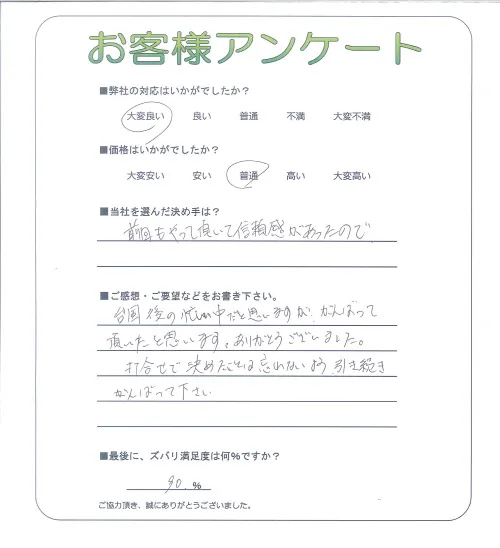 お客様アンケート
■弊社の対応はいかがでしたか?
大変良い 良い 普通 不満 大変不満
■価格はいかがでしたか?
大変安い 安い 普通 高い 大変高い
■当社を選んだ決め手は?
前回もやって頂いて信頼感があったので
■ご感想・ご要望などをお書き下さい。
台風後の忙しい中だと思いますが、がんばって
頂いたと思います。ありがとうございました。
打合せで決めたことは忘れないよう引き続き
がんばって下さい
■最後に、ズバリ満足度は何%ですか?
90.%
ご協力頂き、誠にありがとうございました。